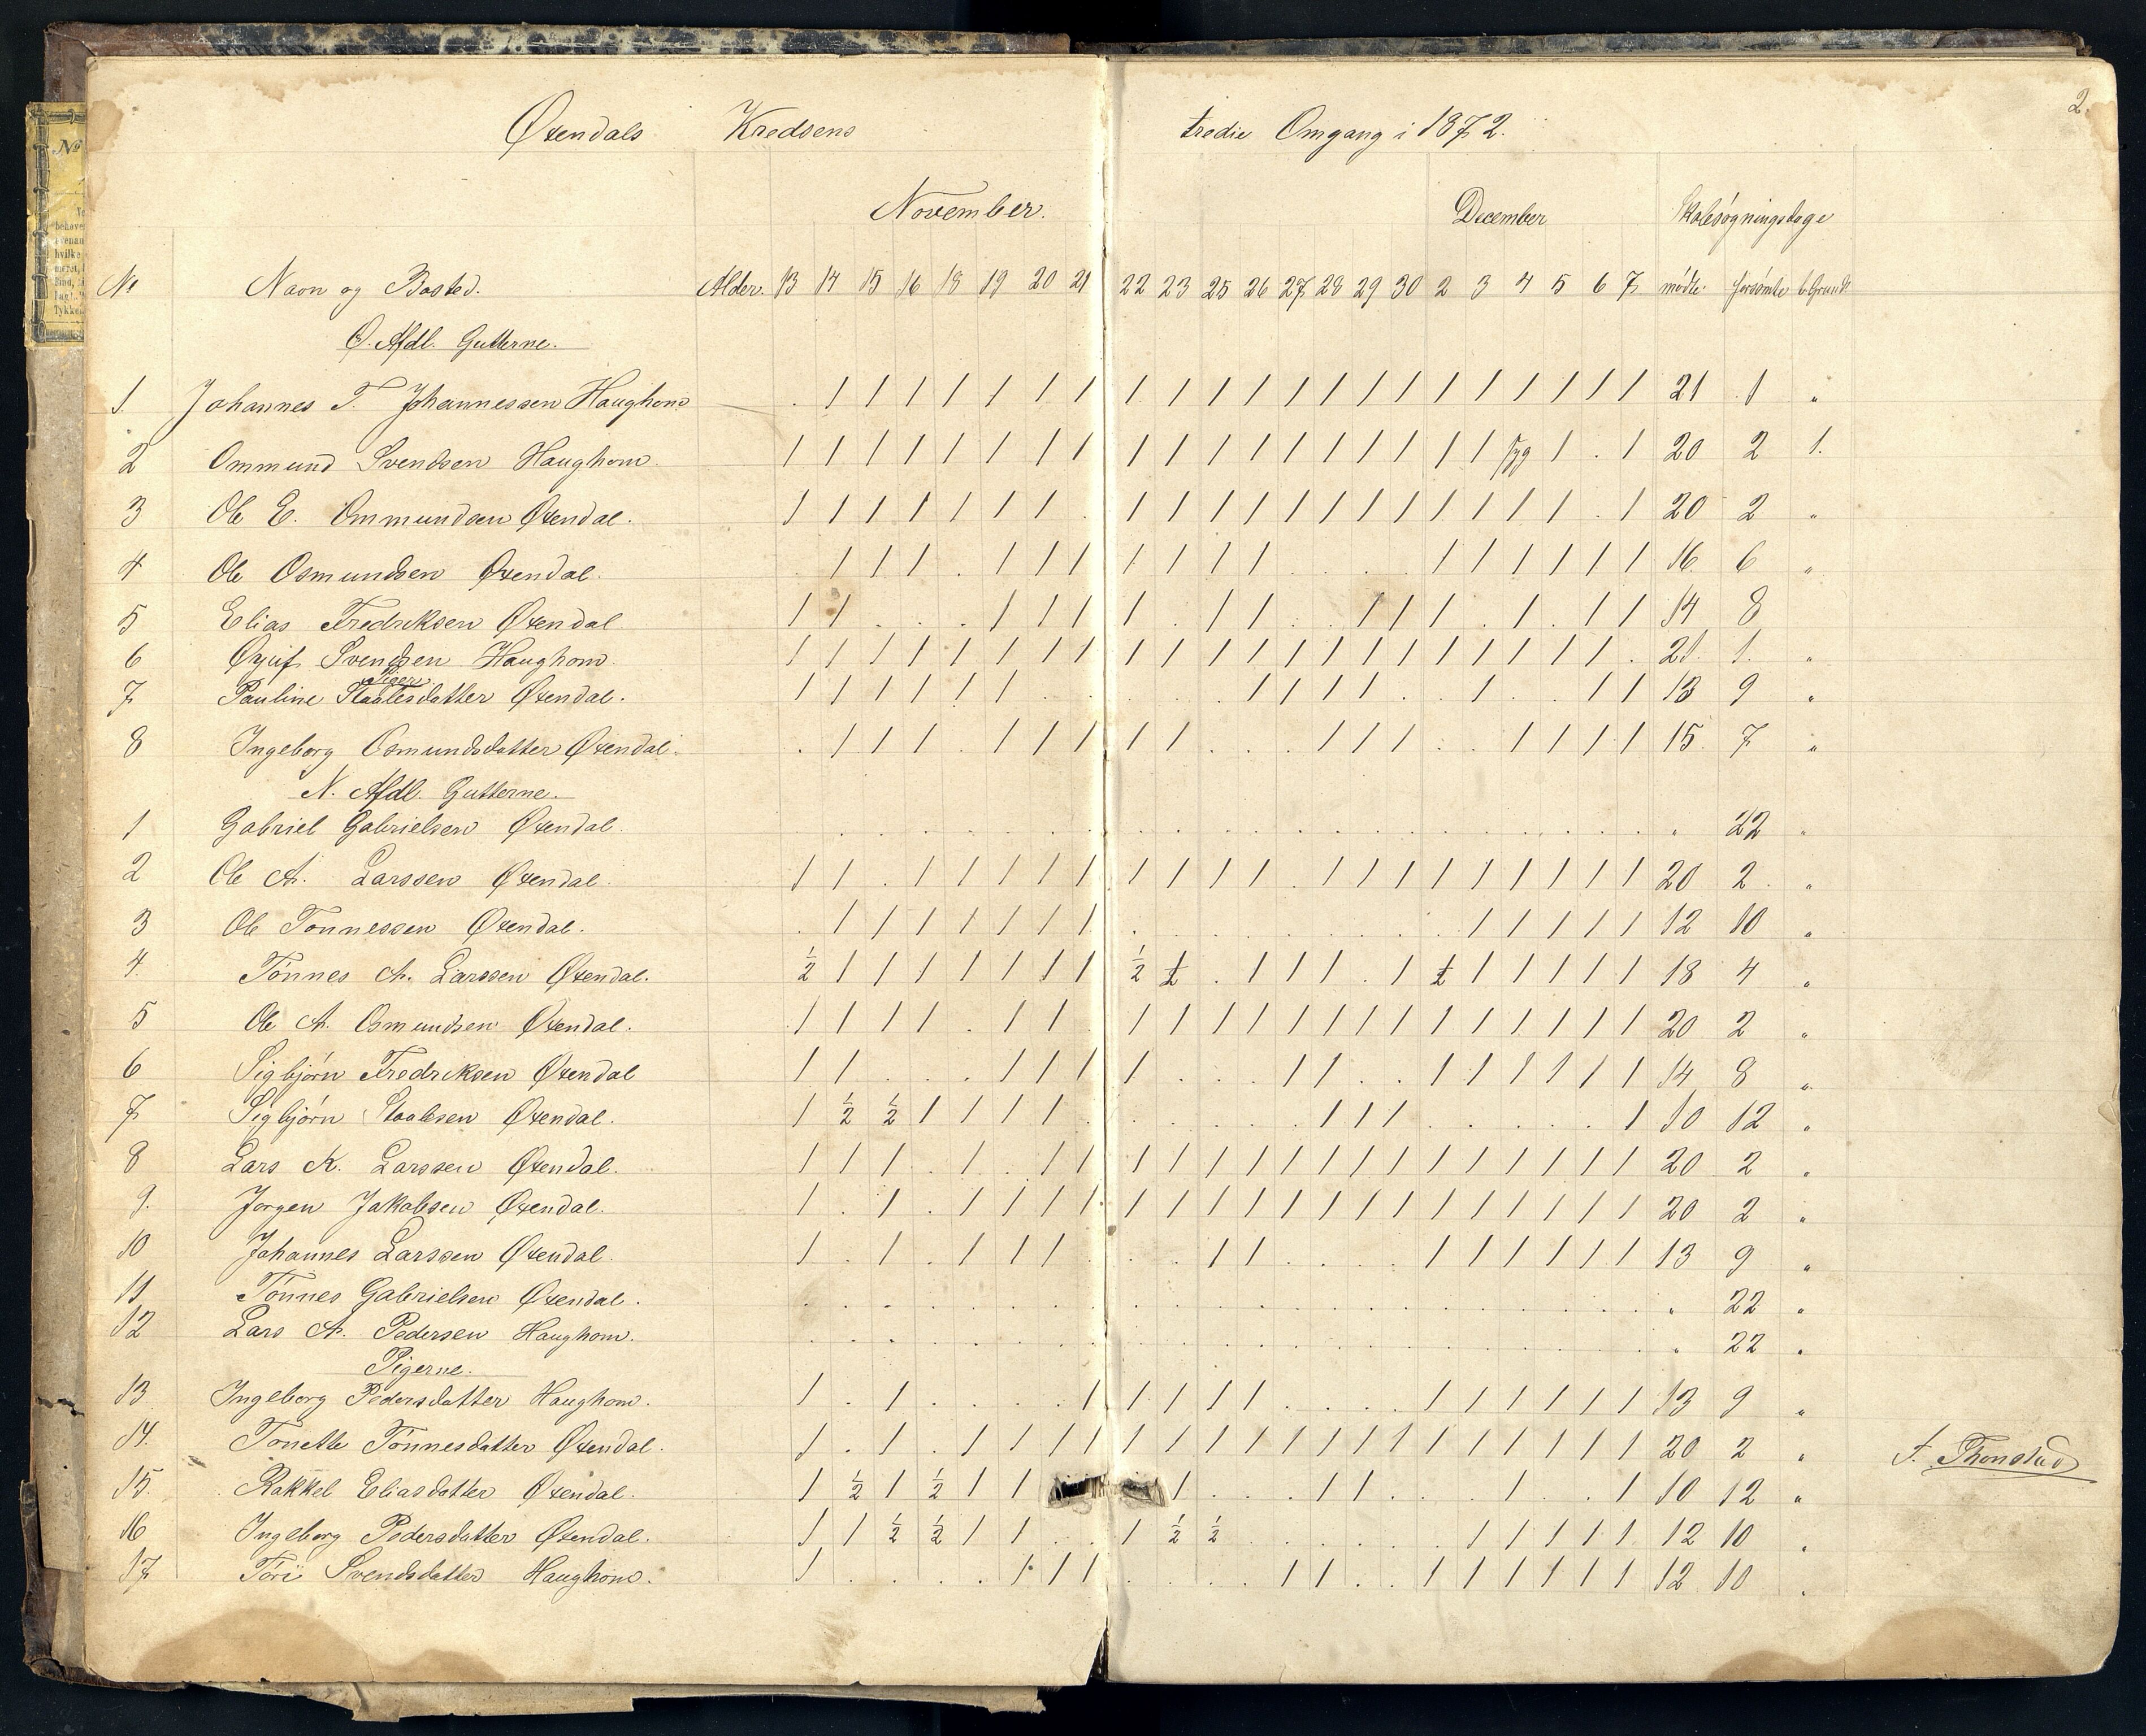 2.
Øxendals Kredsens tredie Omgang i 1872.
November. December Skolesøgningsdage
No Navn og Bosted. Alder. 13 14 15 16 18 19 20 21 22 23 25 26 27 28 29 30 2 3 4 5 6 7 mødte forsømte l. Grund
Ø. Afdl. Gutterne.
1. Johannes T. Johannessen Haughom . 1 1 1 1 1 1 1 1 1 1 1 1 1 1 1 1 1 1 1 1 1 21 1 "
2 Ommund Svendsen Haughom. 1 1 1 1 1 1 1 1 1 1 1 1 1 1 1 1 1 1 1 . 1 20 2 1.
3 Ole E. Ommundsen Øxendal. 1 1 1 1 1 1 1 . 1 1 1 1 1 1 1 1 1 1 1 1 . 1 20 2 "
4 Ole Osmundsen Øxendal. . 1 1 1 . 1 1 1 1 1 1 1 . . . . 1 1 1 1 1 1 16 6 "
5 Elias Fredriksen Øxendal 1 1 . . . 1 1 1 1 . 1 1 . . 1 1 1 . 1 . 1 1 14 8
6 Svendsen Haughom. 1 1 1 1 1 1 1 1 1 1 1 1 1 1 1 1 1 1 1 1 1 . 21. 1. "
Piger.
7 Pauline Staalesdatter Øxendal. 1 1 1 1 1 1 . . . . . 1 1 1 1 . . 1 . . 1 1 13 9 "
8 Ingeborg Osmundsdatter Øxendal. . 1 1 1 . 1 1 1 1 1 . . . 1 1 1 . . 1 1 1 1 15. 7 "
N. Afdl. Gutterne.
1 Gabriel Gabrielsen Øxendal. . . . . . . . . . . . . . . . . . . . . . " 22 "
2 Ole A. Larssen Øxendal. 1 1 . 1 1 1 1 1 1 1 1 1 . 1 1 1 1 1 1 1 1 1 20 2. "
3 Ole Tønnessen Øxendal. . 1 1 1 1 1 1 1 . . . . . . . . . 1 1 1 1 1 12 10 "
4. Tønnes A. Larssen Øxendal. ½ 1 1 1 1 1 1 1 ½ ½ . 1 1 1 . 1 ½ 1 1 1 1 1 18 4 "
5 Ole A. Osmundsen Øxendal. 1 1 1 1 . 1 1 . 1 1 1 1 1 1 1 1 1 1 1 1 1 1 20 2 "
6 Sigbjørn Fredriksen Øxendal 1 1 . . . 1 1 1 1 . . . 1 1 . . 1 1 1 1 1 1 14 8 "
7 Sigbjørn Staalesen Øxendal. 1 ½ ½ 1 1 1 1 . . . . . . 1 1 1 . . . . . 1 10 12 "
8 Lars K. Larssen Øxendal. 1 1 1 . 1 . 1 1 1 1 1 1 1 1 1 1 1 1 1 1 1 1 20 2 "
9. Jørgen Jakobsen Øxendal. 1 . 1 . 1 1 1 1 1 1 1 1 1 1 1 1 1 1 1 1 1 1 20 2 "
10 Johannes Larssen Øxendal. 1 . 1 . 1 1 1 . . . 1 1 . . . . 1 1 1 1 1 1 13 9 "
11 Tønnes Gabrielsen Øxendal. . . . . . . . . . . . . . . . . . . . . . . " 22 "
12 Lars A. Pedersen Haughom. . . . . . . . . . . . . . . . . . . . . . . " 22 "
Pigerne.
13 Ingeborg Pedersdatter Haughom. 1 . 1 . . . . 1 1 1 1 1 . . . . 1 1 1 1 1 1 13 9 "
14. Tonette Tønnesdatter Øxendal. 1 . 1 . 1 1 1 1 1 1 1 1 1 1 1 1 1 1 1 1 1 1 20 2 "
15. Rakkel Eliasdatter Øxendal. 1 ½ 1 ½ 1 1 1 . . . 1 1 . . . 1 . . 1 10 12 "
16 Ingeborg Pedersdatter Øxendal. 1 1 ½ ½ 1 1 . . 1 ½ ½ . . . . . . 1 1 1 1 1 12 10 "
17 Tori Svendsdatter Haughom. 1 . . . . 1 1 1 . . . . 1 1 . . 1 1 1 1 1 1 12 10 "